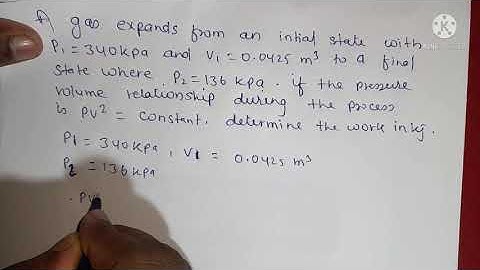 A) gas expands from an intial state with
P₁ = 340kpa and V₁ = 0.0425 m³ to a final
state where P₂ = 136 kpa . if the pressure
volume relationship during the process
is PV² = constant, determine the work in kj.
P₁ = 340kpa , V₁ = 0.0425 m³
P₂ = 136 kpa
. PV